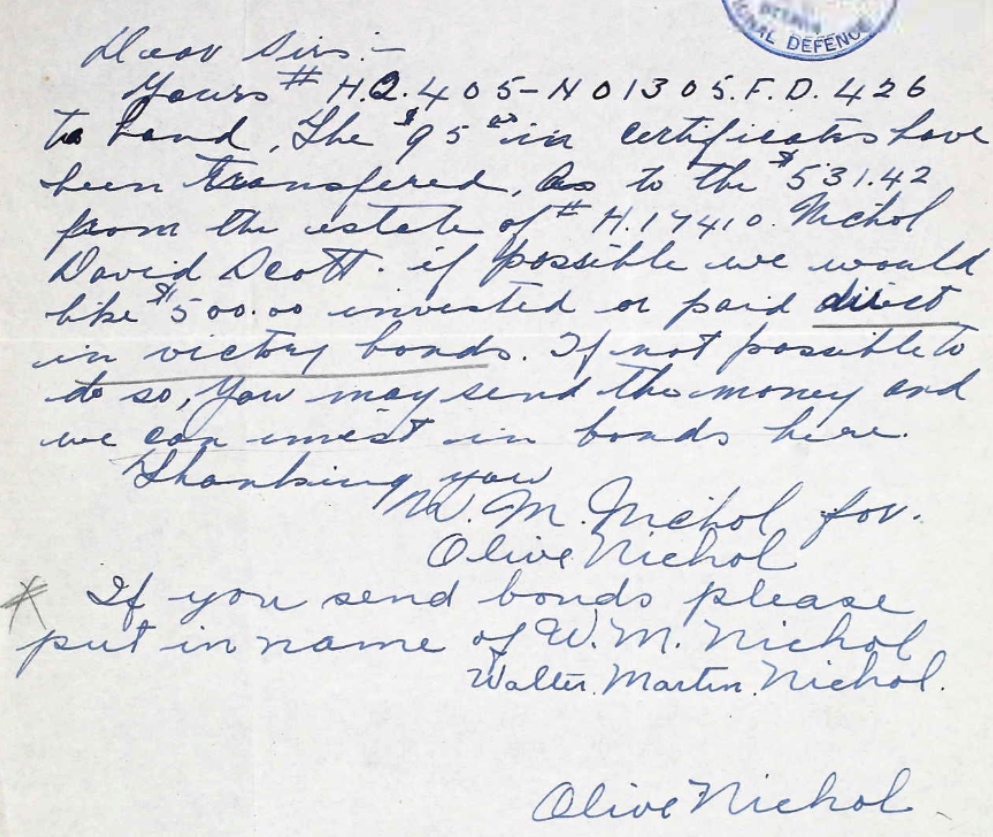 NAL DEFENCE
Dear Sirs:-
Yours # H.Q. 405-N01305.F.D. 426
to hand, The $95 00 in certificates have
been transfered, As to the $531.42
from the estate of # H.17410. Nichol
David Scott. if possible we would
like $500.00 invested or paid direct
in victory bonds. If not possible to
do so, You may send the money and
we can invest in bonds here.
Thanking you
W. M. Nichol for.
Olive Nichol
If you send bonds please
put in name of W. M. Nichol
Walter. Martin. Nichol.
Olive Nichol.